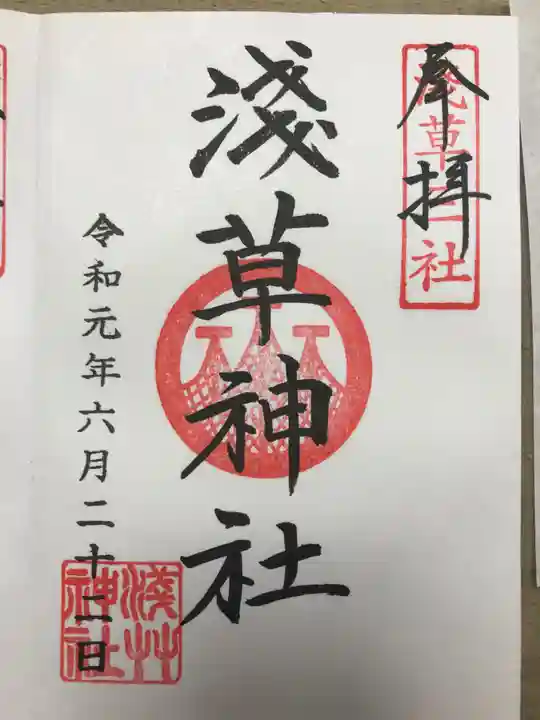 奉拝
淺草三社
淺草神社
令和元年六月二十二日
淺草神社